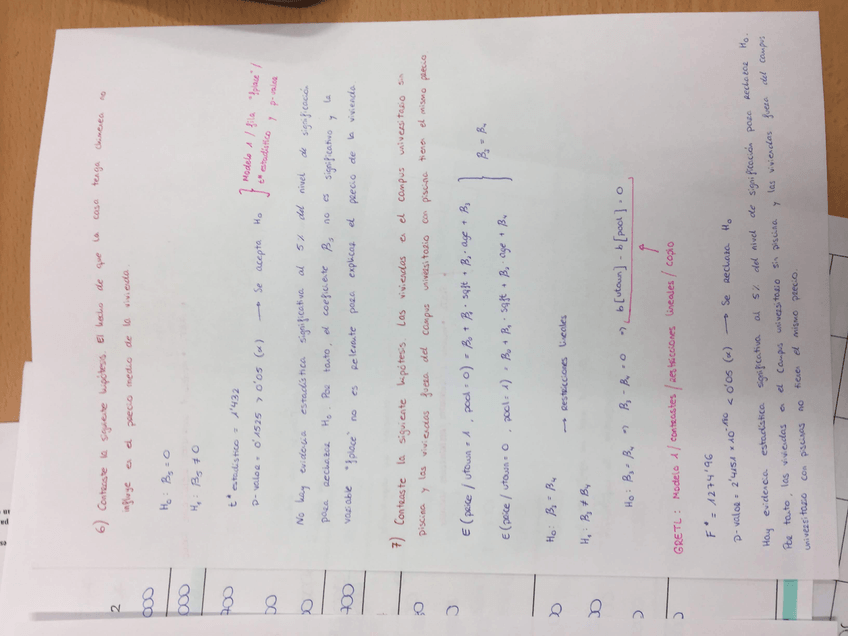 6) Contraste la siguiente hipótesis. El hecho de que la casa tenga chimenea no
influye en el precio medio de la vivienda.
H₀ : β₅ = 0
H₁ : β₅ ≠ 0
t* estadístico = 1'432
p-valor = 0'1525 > 0'05 (α) → Se acepta H₀
} Modelo 1 / fila "fplace" /
t* estadístico y p-valor
No hay evidencia estadística significativa al 5% del nivel de significación
para rechazar H₀. Por tanto, el coeficiente β₅ no es significativo y la
variable "fplace" no es relevante para explicar el precio de la vivienda.
7) Contraste la siguiente hipótesis. Las viviendas en el campus universitario sin
piscina y las viviendas fuera del campus universitario con piscina tienen el mismo precio
E (price / utown = 1, pool = 0) = β₀ + β₁ · sqft + β₂ · age + β₃
E (price / utown = 0, pool = 1) = β₀ + β₁ · sqft + β₂ · age + β₄
} β₃ = β₄
H₀ : β₃ = β₄
→ restricciones lineales
H₁ : β₃ ≠ β₄
H₀ : β₃ = β₄ ⇒ β₃ - β₄ = 0 ⇒ b[utown] - b[pool] = 0
GRETL : Modelo 1 / contrastes / restricciones lineales / copio
F* = 1274'96
p-valor = 2'4151 × 10⁻¹⁸⁰ < 0'05 (α) → Se rechaza H₀
Hay evidencia estadística significativa al 5% del nivel de significación para rechazar H₀.
Por tanto, las viviendas en el campus universitario sin piscina y las viviendas fuera del campus
universitario con piscinas no tienen el mismo precio.
2
000
000
700
00
00
700